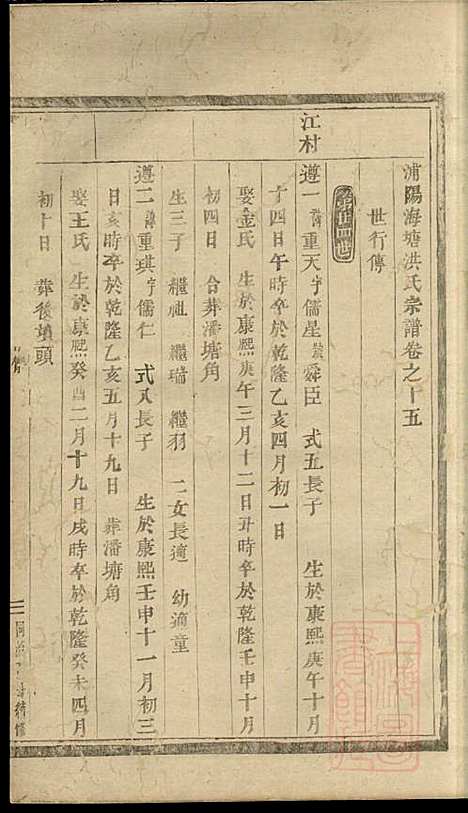 浦陽海塘洪氏宗譜卷之十五
世行傳
第廿四世
江村
遵一諱重天字儒星號舜臣 式五長子 生於康熙庚午十月
十四日午時卒於乾隆乙亥四月初一日
娶金氏 生於康熙庚午三月十二日丑時卒於乾隆壬申十月
初四日 合葬潘塘角
生三子 繼祖 繼瑞 繼羽 二女長適 幼適童
遵二諱重琪字儒仁 式八長子 生於康熙壬申十一月初三
日亥時卒於乾隆乙亥五月十九日 葬潘塘角
娶王氏 生於康熙癸酉二月十九日戌時卒於乾隆癸未四月
初十日 葬後墳頭
同治
續修
上海圖書館藏